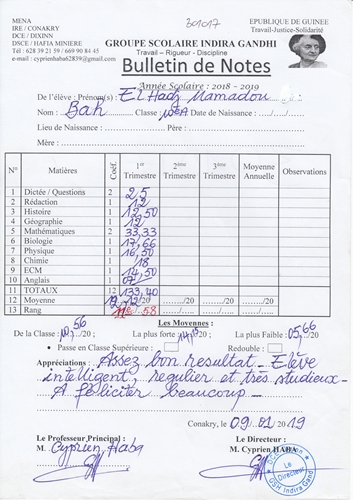 301017
MENA
IRE / CONAKRY
DCE / DIXINN
DSCE / HAFIA MINIERE
Tél : 628 39 21 59 / 669 90 84 45
e-mail : cyprienhaba62839@gmail.com
EPUBLIQUE DE GUINEE
Travail-Justice-Solidarité
GROUPE SCOLAIRE INDIRA GANDHI
Travail – Rigueur - Discipline
Bulletin de Notes
Année Scolaire : 2018 - 2019
De l'élève : Prénom(s) : El Hadj Mamadou
Nom : Bah Classe : Date de Naissance : ..../..../....
Lieu de Naissance : Père :
Mère :
N° Matières Coéf. 1er Trimestre 2ème Trimestre 3ème Trimestre Moyenne Annuelle Observations
1 Dictée / Questions 2 2,5
2 Rédaction 1 12
3 Histoire 1 12,50
4 Géographie 1 12
5 Mathématiques 2 33,33
6 Biologie 1 17,66
7 Physique 1 16,50
8 Chimie 1 18
9 ECM 1 14,50
10 Anglais 1 07
11 TOTAUX 12 133,40
12 Moyenne /20 ....../20 ....../20 ....../20
13 Rang /58
Les Moyennes :
De la Classe : 10,56/20 ; La plus forte : /20 ; La plus Faible : 05,66/20
• Passe en Classe Supérieure : Redouble :
Appréciations : Assez bon resultat - Elève
intelligent, regulier et très studieux -
A féliciter beaucoup -
Conakry, le 09/01/2019
Le Professeur Principal : Le Directeur :
M. Cyprien Haba M. Cyprien HABA
Le Directeur
GSH Indira Gandhi